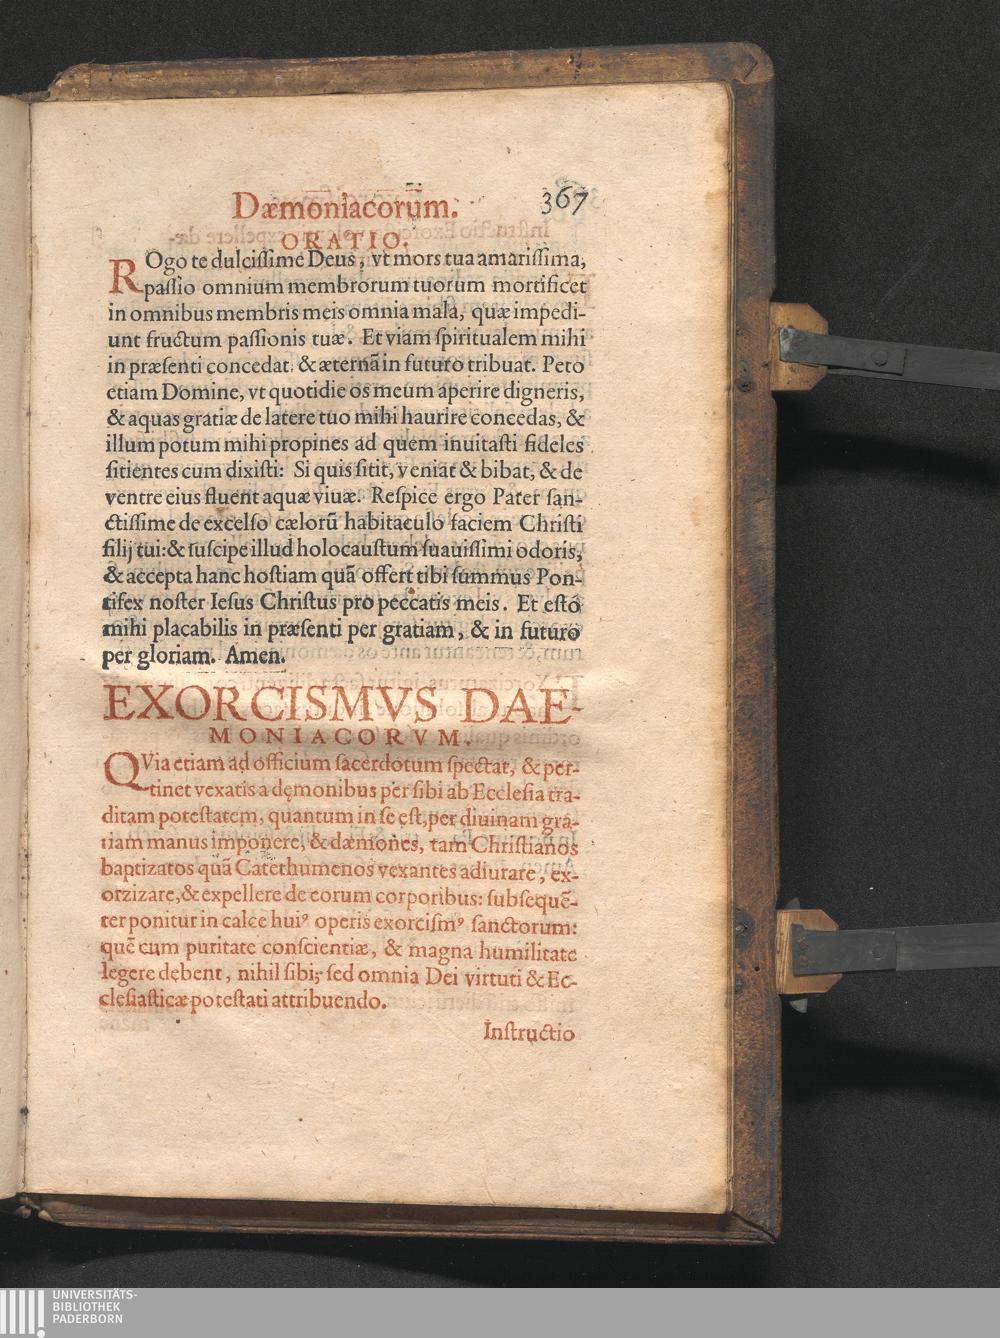 Dæmoniacorum. 367
ORATIO.
ROgo te dulcissime Deus, vt mors tua amarissima,
passio omnium membrorum tuorum mortificet
in omnibus membris meis omnia mala, quæ impedi-
unt fructum passionis tuæ. Et viam spiritualem mihi
in præsenti concedat, & æternā in futuro tribuat. Peto
etiam Domine, vt quotidie os meum aperire digneris,
& aquas gratiæ de latere tuo mihi haurire concedas, &
illum potum mihi propines ad quem inuitasti fideles
sitientes cum dixisti: Si quis sitit, veniat & bibat, & de
ventre eius fluent aquæ viuæ. Respice ergo Pater san-
ctissime de excelso cælorū habitaculo faciem Christi
filij tui: & suscipe illud holocaustum suauissimi odoris,
& accepta hanc hostiam quā offert tibi summus Pon-
tifex noster Iesus Christus pro peccatis meis. Et esto
mihi placabilis in præsenti per gratiam, & in futuro
per gloriam. Amen.
EXORCISMVS DAE-
MONIACORVM.
QVia etiam ad officium sacerdotum spectat, & per-
tinet vexatis a dęmonibus per sibi ab Ecclesia tra-
ditam potestatem, quantum in se est, per diuinam gra-
tiam manus imponere, & dæmones, tam Christianos
baptizatos quā Catethumenos vexantes adiurare, ex-
orzizare, & expellere de eorum corporibus: subsequē-
ter ponitur in calce huiꝰ operis exorcismꝰ sanctorum:
quē cum puritate conscientiæ, & magna humilitate
legere debent, nihil sibi, sed omnia Dei virtuti & Ec-
clesiasticæ potestati attribuendo.
Instructio
UNIVERSITÄTS-
BIBLIOTHEK
PADERBORN